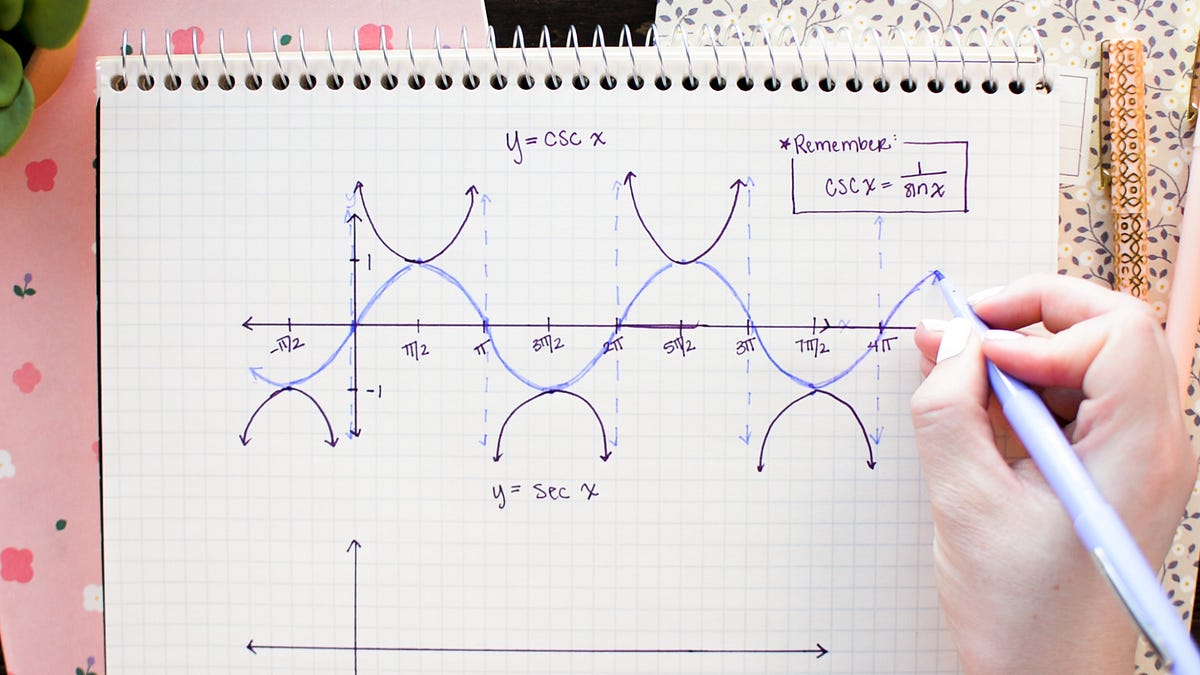 y = csc x
*Remember:
csc x = 1/sin x
y
1
-π/2 π/2 π 3π/2 2π 5π/2 3π 7π/2 4π
x
-1
y = sec x